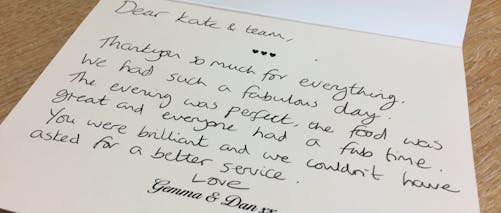 Dear Kate & team,
♥♥♥
Thankyou so much for everything.
We had such a fabulous day.
The evening was perfect, the food was
great and everyone had a fab time.
You were brilliant and we couldn't have
asked for a better service.
Love
Gemma & Dan xx